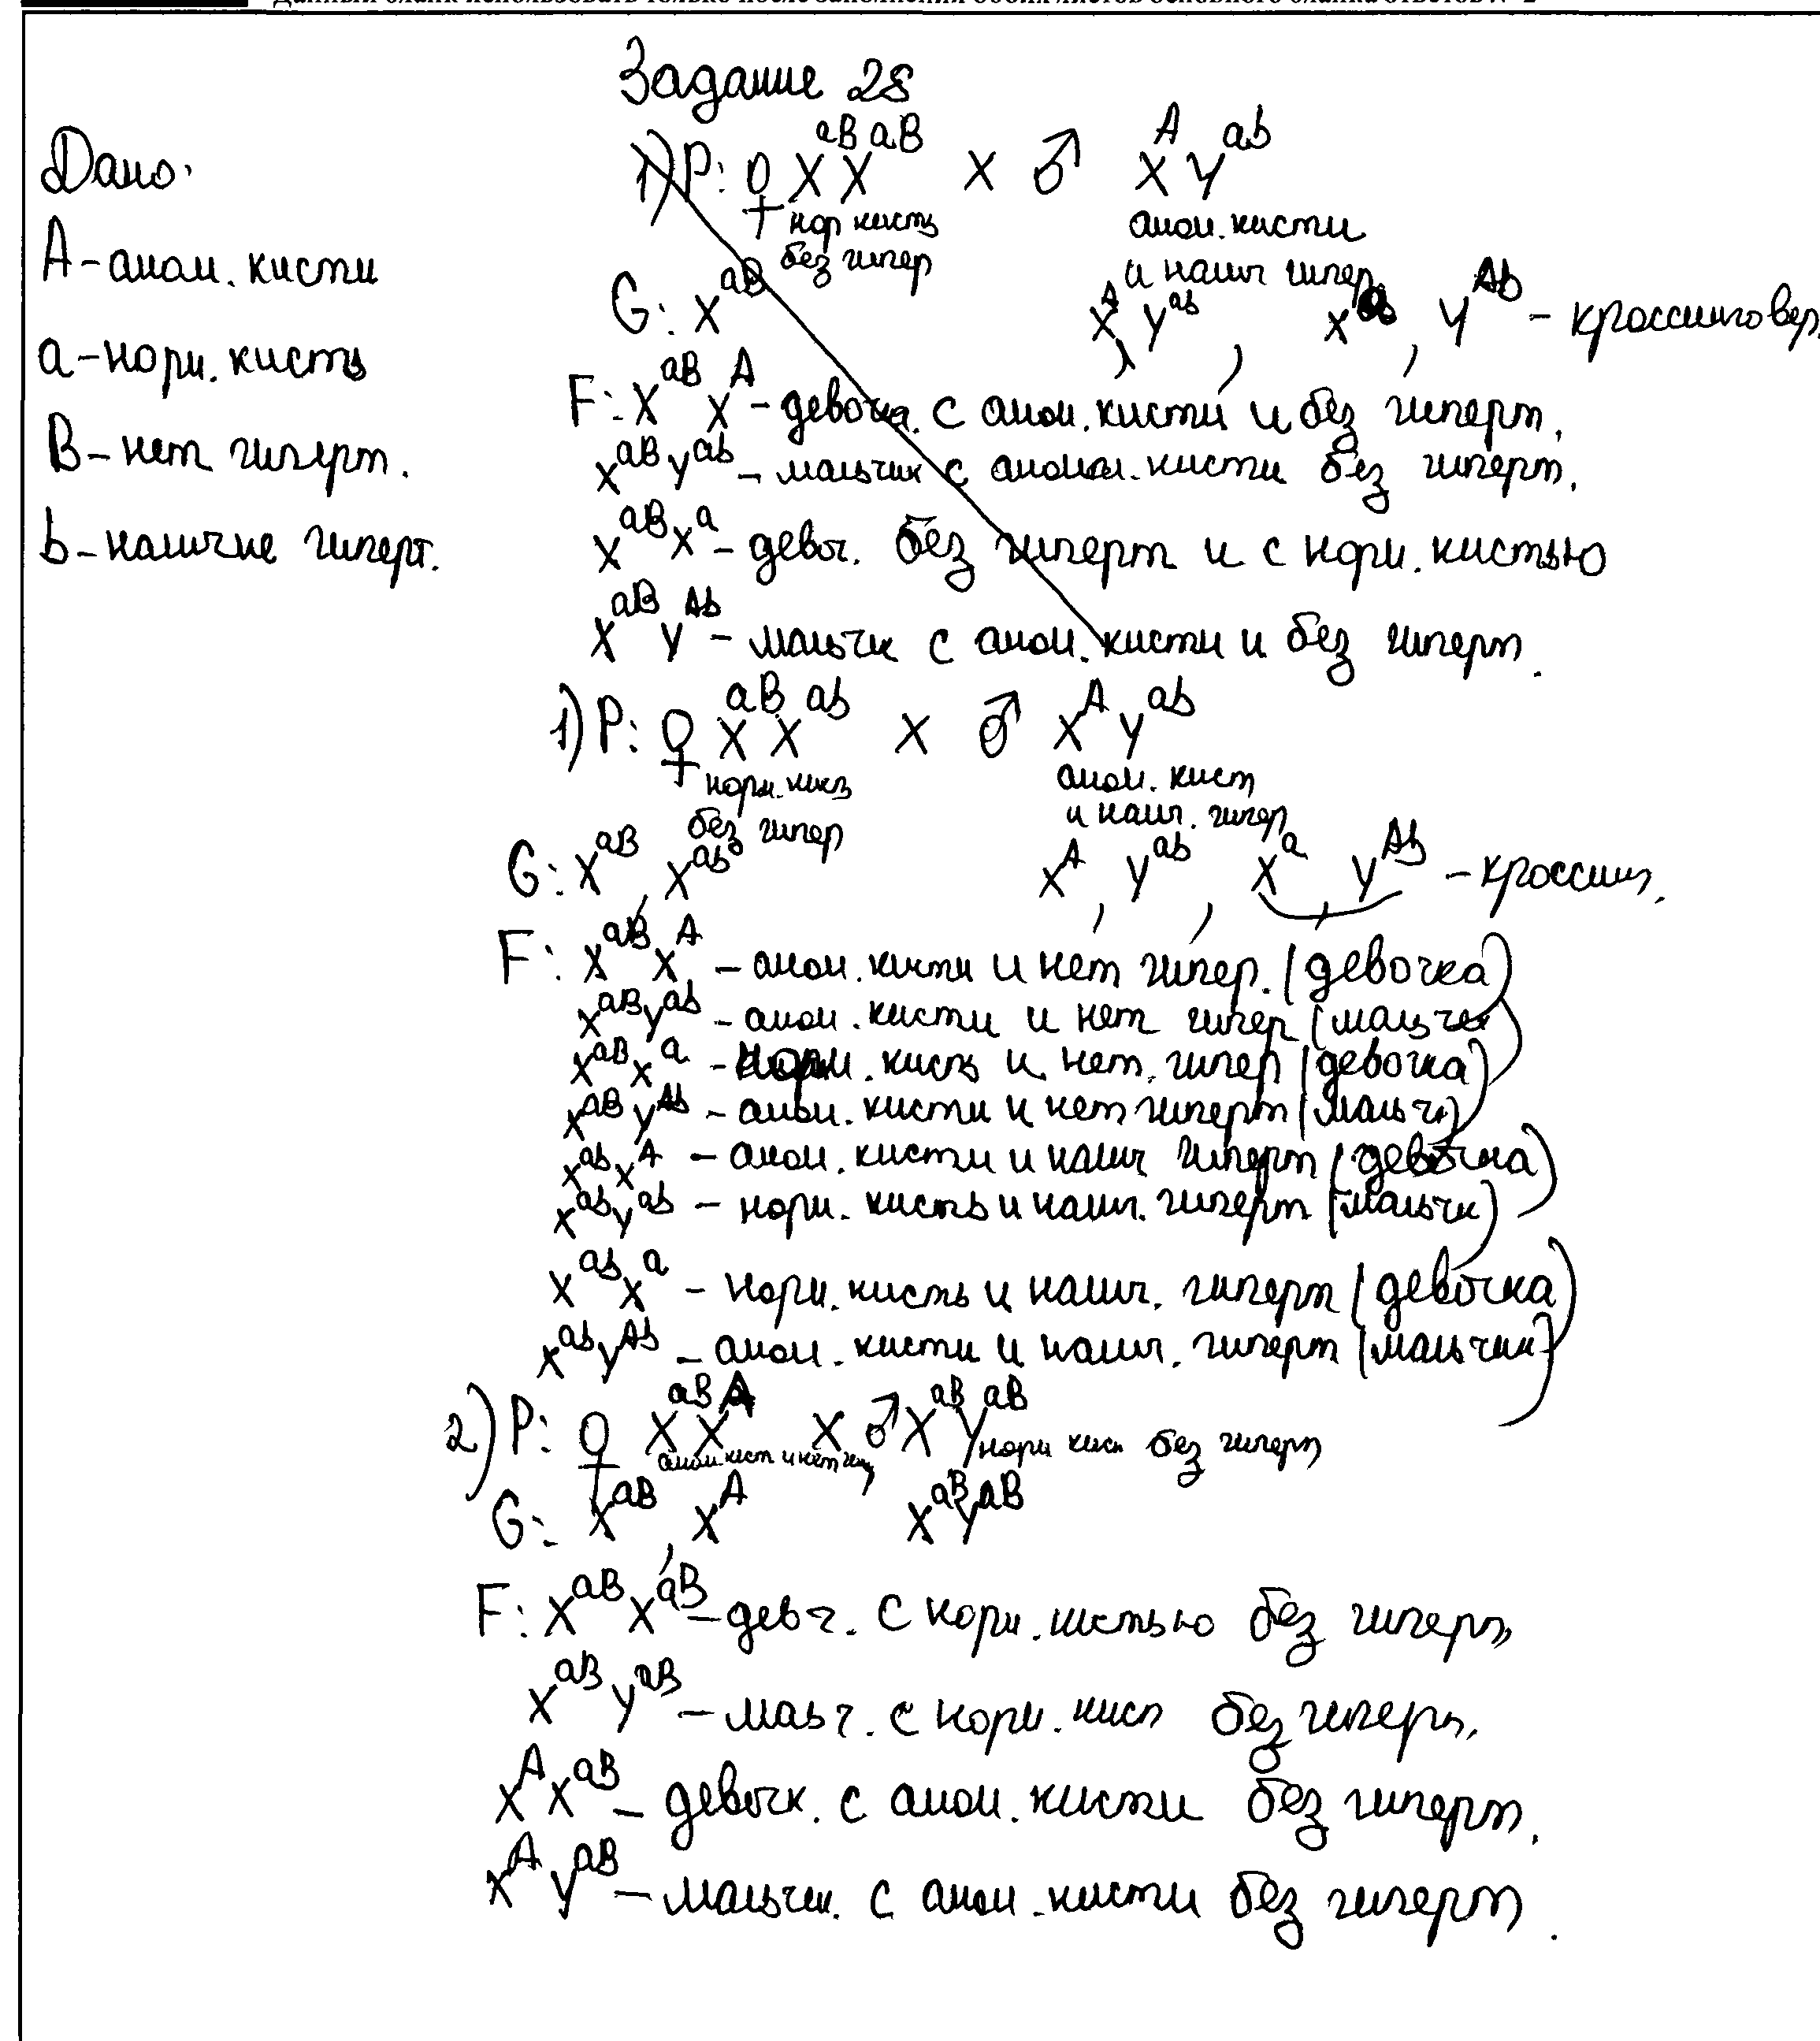 Данный бланк использовать только после заполнения обоих листов основного бланка ответов № 2
Задание 28
Дано:
А - аном. кисти
а - норм. кисть
В - нет гиперт.
b - наличие гиперт.
1) P: ♀ X^aB X^aB x ♂ X^A Y^ab
нор кисть
без гипер
аном. кисти
и налич гипер
G: X^aB
X^A, Y^ab, Y^Ab - кроссинговер
F: X^aB X^A - девочка. с аном. кисти и без гиперт.
X^aB Y^ab - мальчик с аномал. кисти без гиперт.
X^aB X^a - девоч. без гиперт и с норм. кистью
X^aB Y^Ab - мальчик с аном. кисти и без гиперт.
1) P: ♀ X^aB X^ab x ♂ X^A Y^ab
норм. кисть
без гипер
аном. кист
и налич. гипер
G: X^aB, X^ab
X^A, Y^ab, X^a, Y^Ab - кроссинг.
F: X^aB X^A - аном. кисти и нет гипер. (девочка)
X^aB Y^ab - аном. кисти и нет гипер (мальчик
X^aB X^a - норм. кисть и нет. гипер (девочка)
X^aB Y^Ab - аном. кисти и нет гиперт (мальч)
X^ab X^A - аном. кисти и налич гиперт (девочка)
X^ab Y^ab - норм. кисть и налич. гиперт (мальчи)
X^ab X^a - норм. кисть и налич. гиперт (девочка)
X^ab Y^Ab - аном. кисти и налич. гиперт (мальчик)
2) P: ♀ X^aB X^A x ♂ X^aB Y^aB
аном. кист и нет гип
норм кисть без гиперт
G: X^aB, X^A
X^aB Y^aB
F: X^aB X^aB - девч. с норм. кистью без гиперт,
X^aB Y^aB - мальч. с норм. кист без гиперт,
X^A X^aB - девочк. с аном. кисти без гиперт,
X^A Y^aB - мальчик. с аном. кисти без гиперт.